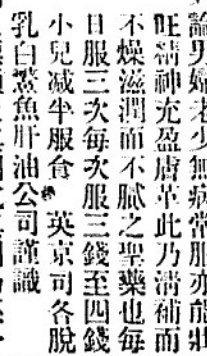 論男婦老少無病常服亦能壯
旺精神充盈膚革此乃清補而
不燥滋潤而不膩之聖藥也每
日服三次每次服三錢至四錢
小兒减半服食 英京司各脫
乳白鰵魚肝油公司謹識